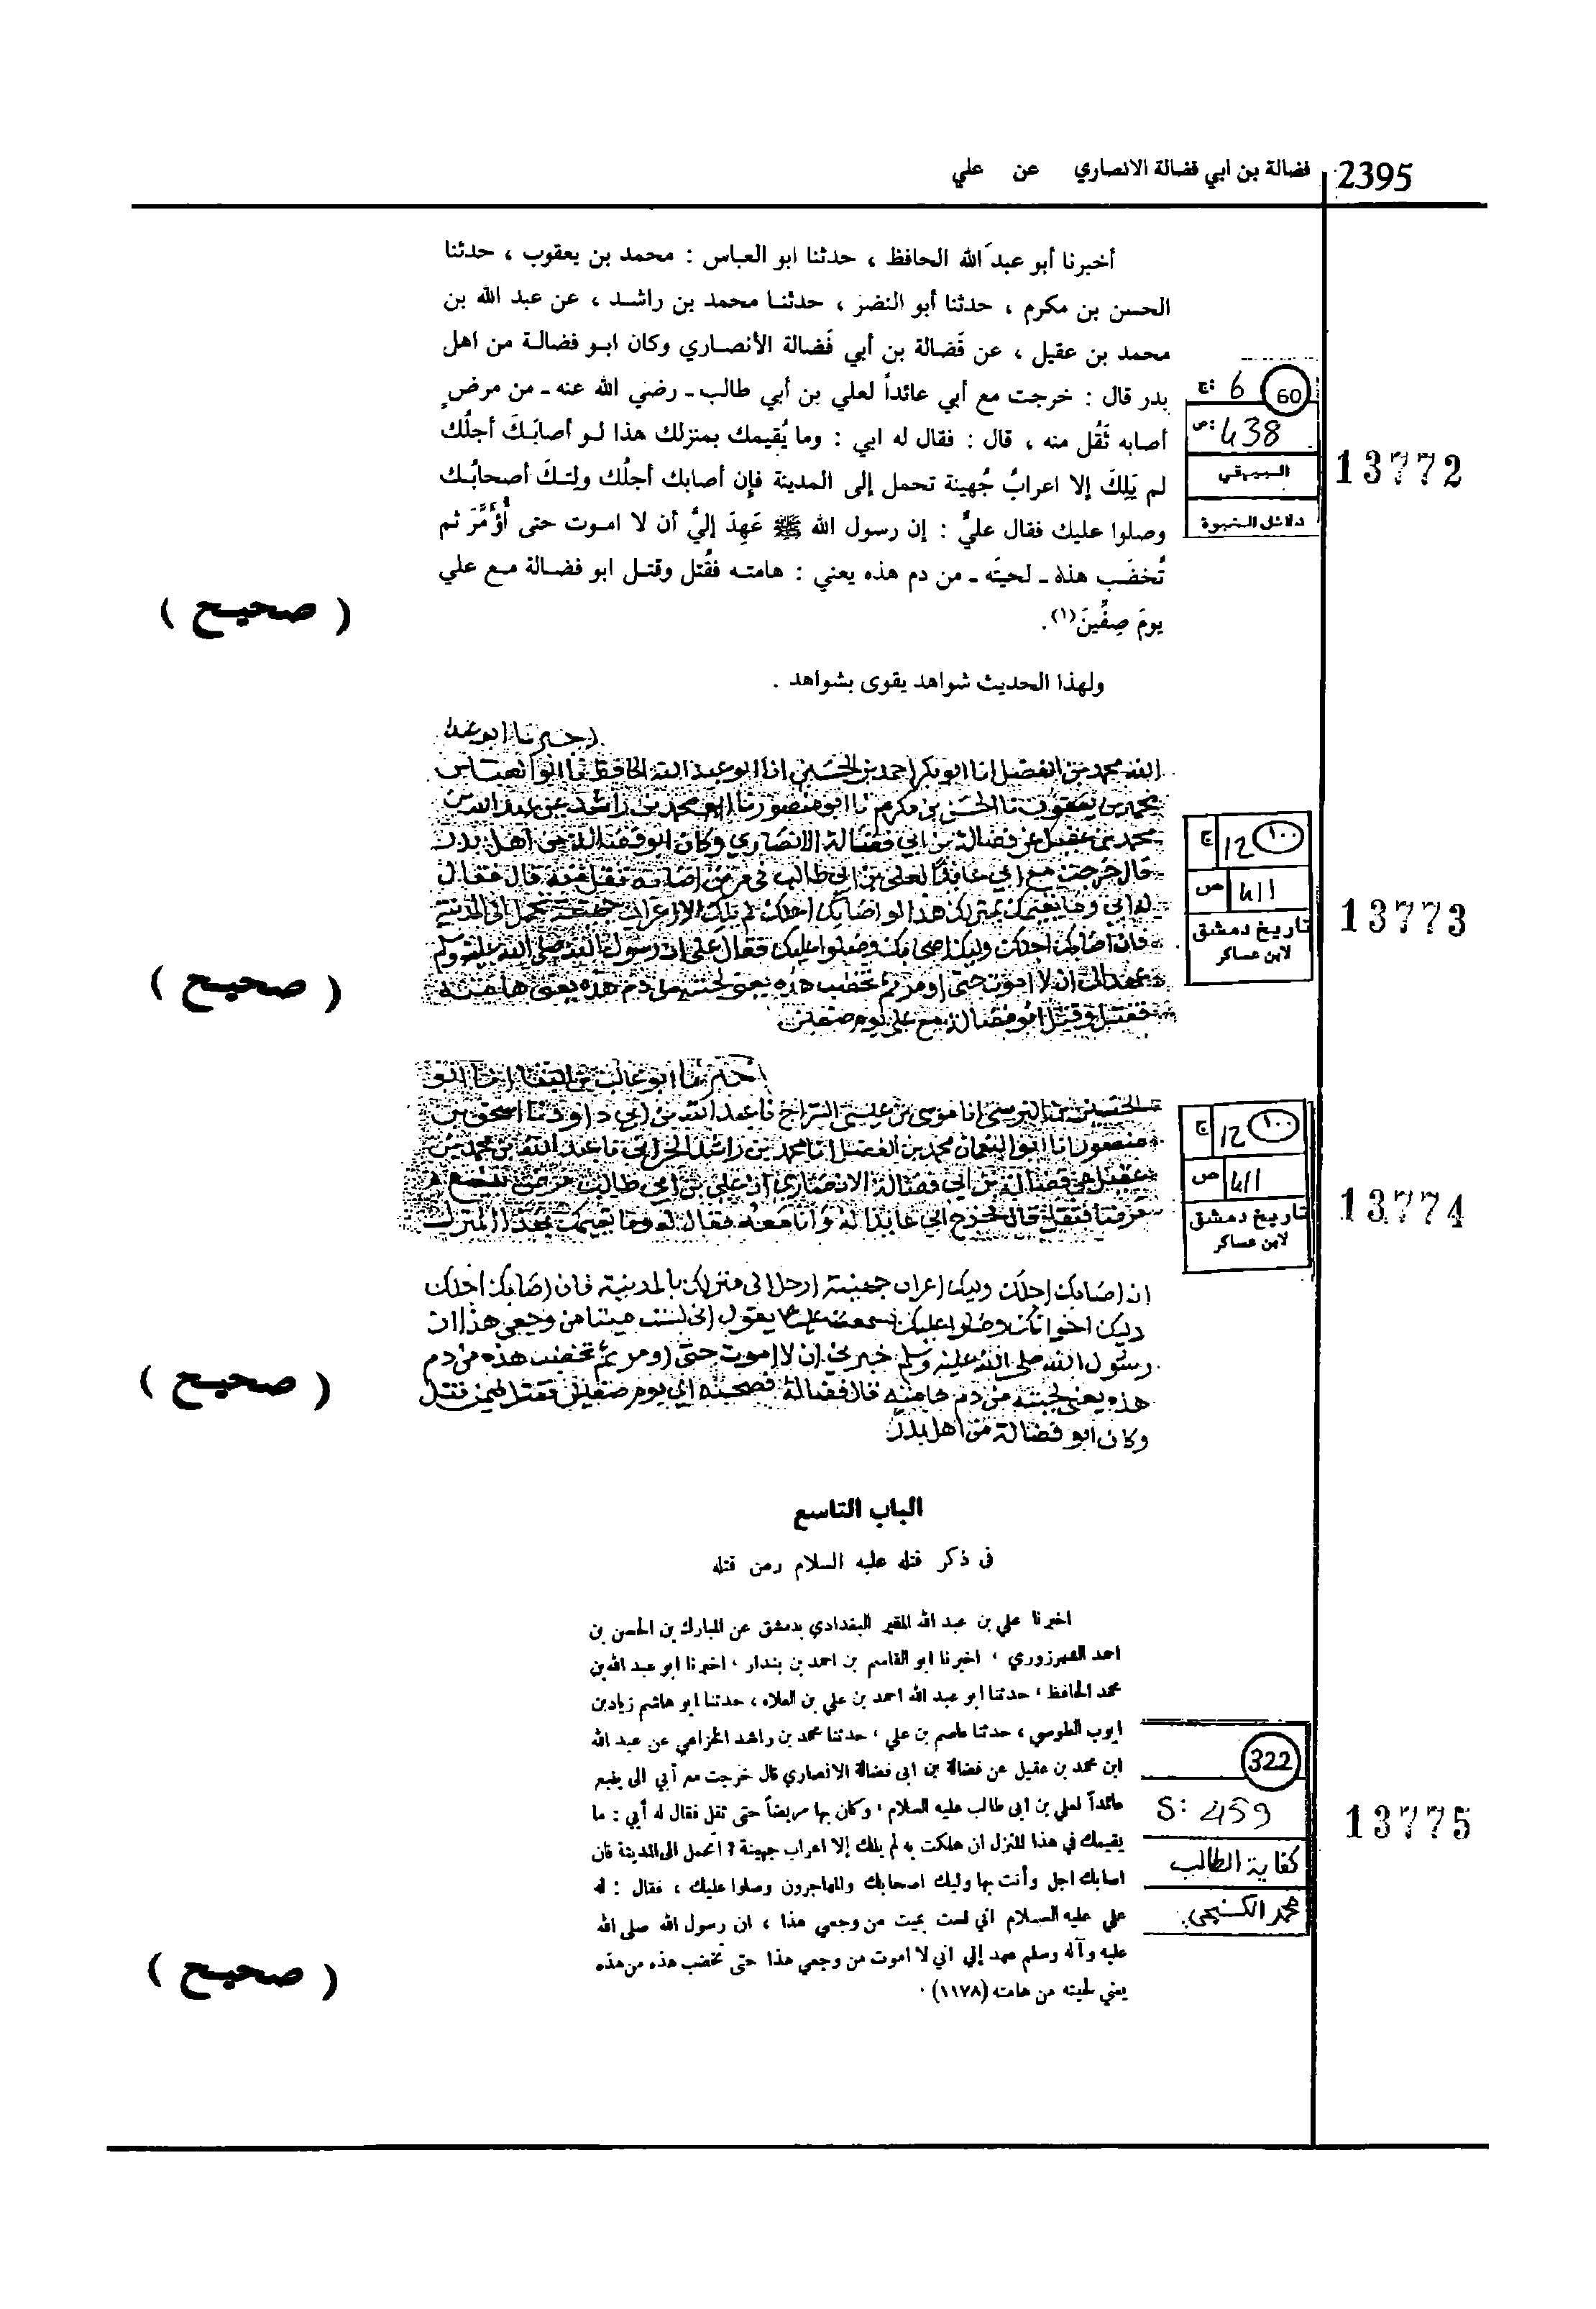 2395 فضالة بن ابي فضالة الانصاري عن علي
أخبرنا أبو عبد الله الحافظ ، حدثنا ابو العباس : محمد بن يعقوب ، حدثنا
الحسن بن مكرم ، حدثنا أبو النضر ، حدثنا محمد بن راشد ، عن عبد الله بن
محمد بن عقيل ، عن فَضالة بن أبي فَضالة الأنصاري وكان ابو فضالة من اهل
بدر قال : خرجت مع أبي عائداً لعلي بن أبي طالب ـ رضي الله عنه ـ من مرضٍ
أصابه ثَقُل منه ، قال : فقال له ابي : وما يُقيمك بمنزلك هذا لو أصابَكَ أجلُك
لم يَلِكَ إلا اعرابُ جُهينة تحمل إلى المدينة فإن أصابك أجلُك ولِتَكَ أصحابُك
وصلوا عليك فقال عليٌّ : إن رسول الله ﷺ عَهِدَ إليَّ أن لا اموت حتى أُؤَمَّرَ ثم
تُخضَب هذه ـ لحيتَه ـ من دم هذه يعني : هامته فقُتل وقتل ابو فضالة مع علي
يومَ صِفِّينَ(١) .
ولهذا الحديث شواهد يقوى بشواهد .
( صحيح )
ج: 6 60
ص: 438
البيهقي
دلائل النبوة
13772
اخبرنا ابو عبد
الله محمد بن الفضل انا ابو بكر احمد بن الحسين انا ابو عبد الله الحافظ نا ابو العباس
محمد بن يعقوب نا الحسن بن مكرم نا ابو منصور نا محمد بن راشد عن عبد الله بن
محمد بن عقيل عن فضالة بن ابي فضالة الانصاري وكان ابو فضالة من اهل بدر
قال خرجت مع ابي عائدا لعلي بن ابي طالب في مرض اصابه ثقل منه قال فقال
له ابي وما يقيمك بمنزلك هذا لو اصابك اجلك لم يلك الا اعراب جهينة تحمل الى المدينة
فان اصابك اجلك وليك اصحابك وصلوا عليك فقال علي ان رسول الله صلى الله عليه وسلم
عهد الي ان لا اموت حتى اومر ثم تخضب هذه يعني لحيته من دم هذه يعني هامته
فقتل وقتل ابو فضالة مع علي يوم صفين
( صحيح )
١٠٠ 12 ج
411 ص
تاريخ دمشق
لابن عساكر
13773
اخبرنا ابو غالب بن البنا انا ابو
الحسين بن النرسي انا موسى بن عيسى السراج نا عبد الله بن ابي داود نا اسحق بن
منصور انا ابو النعمان محمد بن الفضل انا محمد بن راشد الخزاعي نا عبد الله بن محمد بن
عقيل عن فضالة بن ابي فضالة الانصاري ان علي بن ابي طالب مرض بينبع
مرضا فثقل قال فخرج ابي عائدا له وانا معه فقال له وما يقيمك بهذا المنزل
ان اصابك اجلك وليك اعراب جهينة ارحل الى منزلك بالمدينة فان اصابك اجلك
وليك اخوانك وصلوا عليك سمعت عليا يقول اني لست ميتا من وجعي هذا ان
رسول الله صلى الله عليه وسلم خبرني ان لا اموت حتى اومر ثم تخضب هذه من دم
هذه يعني لحيته من دم هامته قال فضالة فصحبه ابي يوم صفين فقتل فيمن قتل
وكان ابو فضالة من اهل بدر
( صحيح )
١٠٠ 12 ج
411 ص
تاريخ دمشق
لابن عساكر
13774
الباب التاسع
في ذكر قتله عليه السلام ومن قتله
اخبرنا علي بن عبد الله المقير البغدادي بدمشق عن المبارك بن الحسن بن
احمد الشهرزوري ، اخبرنا ابو القاسم بن احمد بن بندار ، اخبرنا ابو عبد الله بن
محمد الحافظ ، حدثنا ابو عبد الله احمد بن علي بن العلاء ، حدثنا ابو هاشم زياد بن
ايوب الطوسي ، حدثنا عاصم بن علي ، حدثنا محمد بن راشد الخزاعي عن عبد الله
ابن محمد بن عقيل عن فضالة بن ابى فضالة الانصاري قال خرجت مع أبي الى ينبع
عائداً لعلي بن ابى طالب عليه السلام ، وكان بها مريضاً حتى ثقل فقال له أبي : ما
يقيمك في هذا المنزل ان هلكت به لم يلك إلا اعراب جهينة ? اتحمل الى المدينة فان
اصابك اجل وأنت بها وليك اصحابك والمهاجرون وصلوا عليك ، فقال : له
علي عليه السلام اني لست بميت من وجعي هذا ، ان رسول الله صلى الله
عليه وآله وسلم عهد إلي اني لا اموت من وجعي هذا حتى تخضب هذه من هذه
يعني لحيته من هامته (١١٧٨) .
( صحيح )
322
S: 459
كفاية الطالب
محمد الكنجي
13775